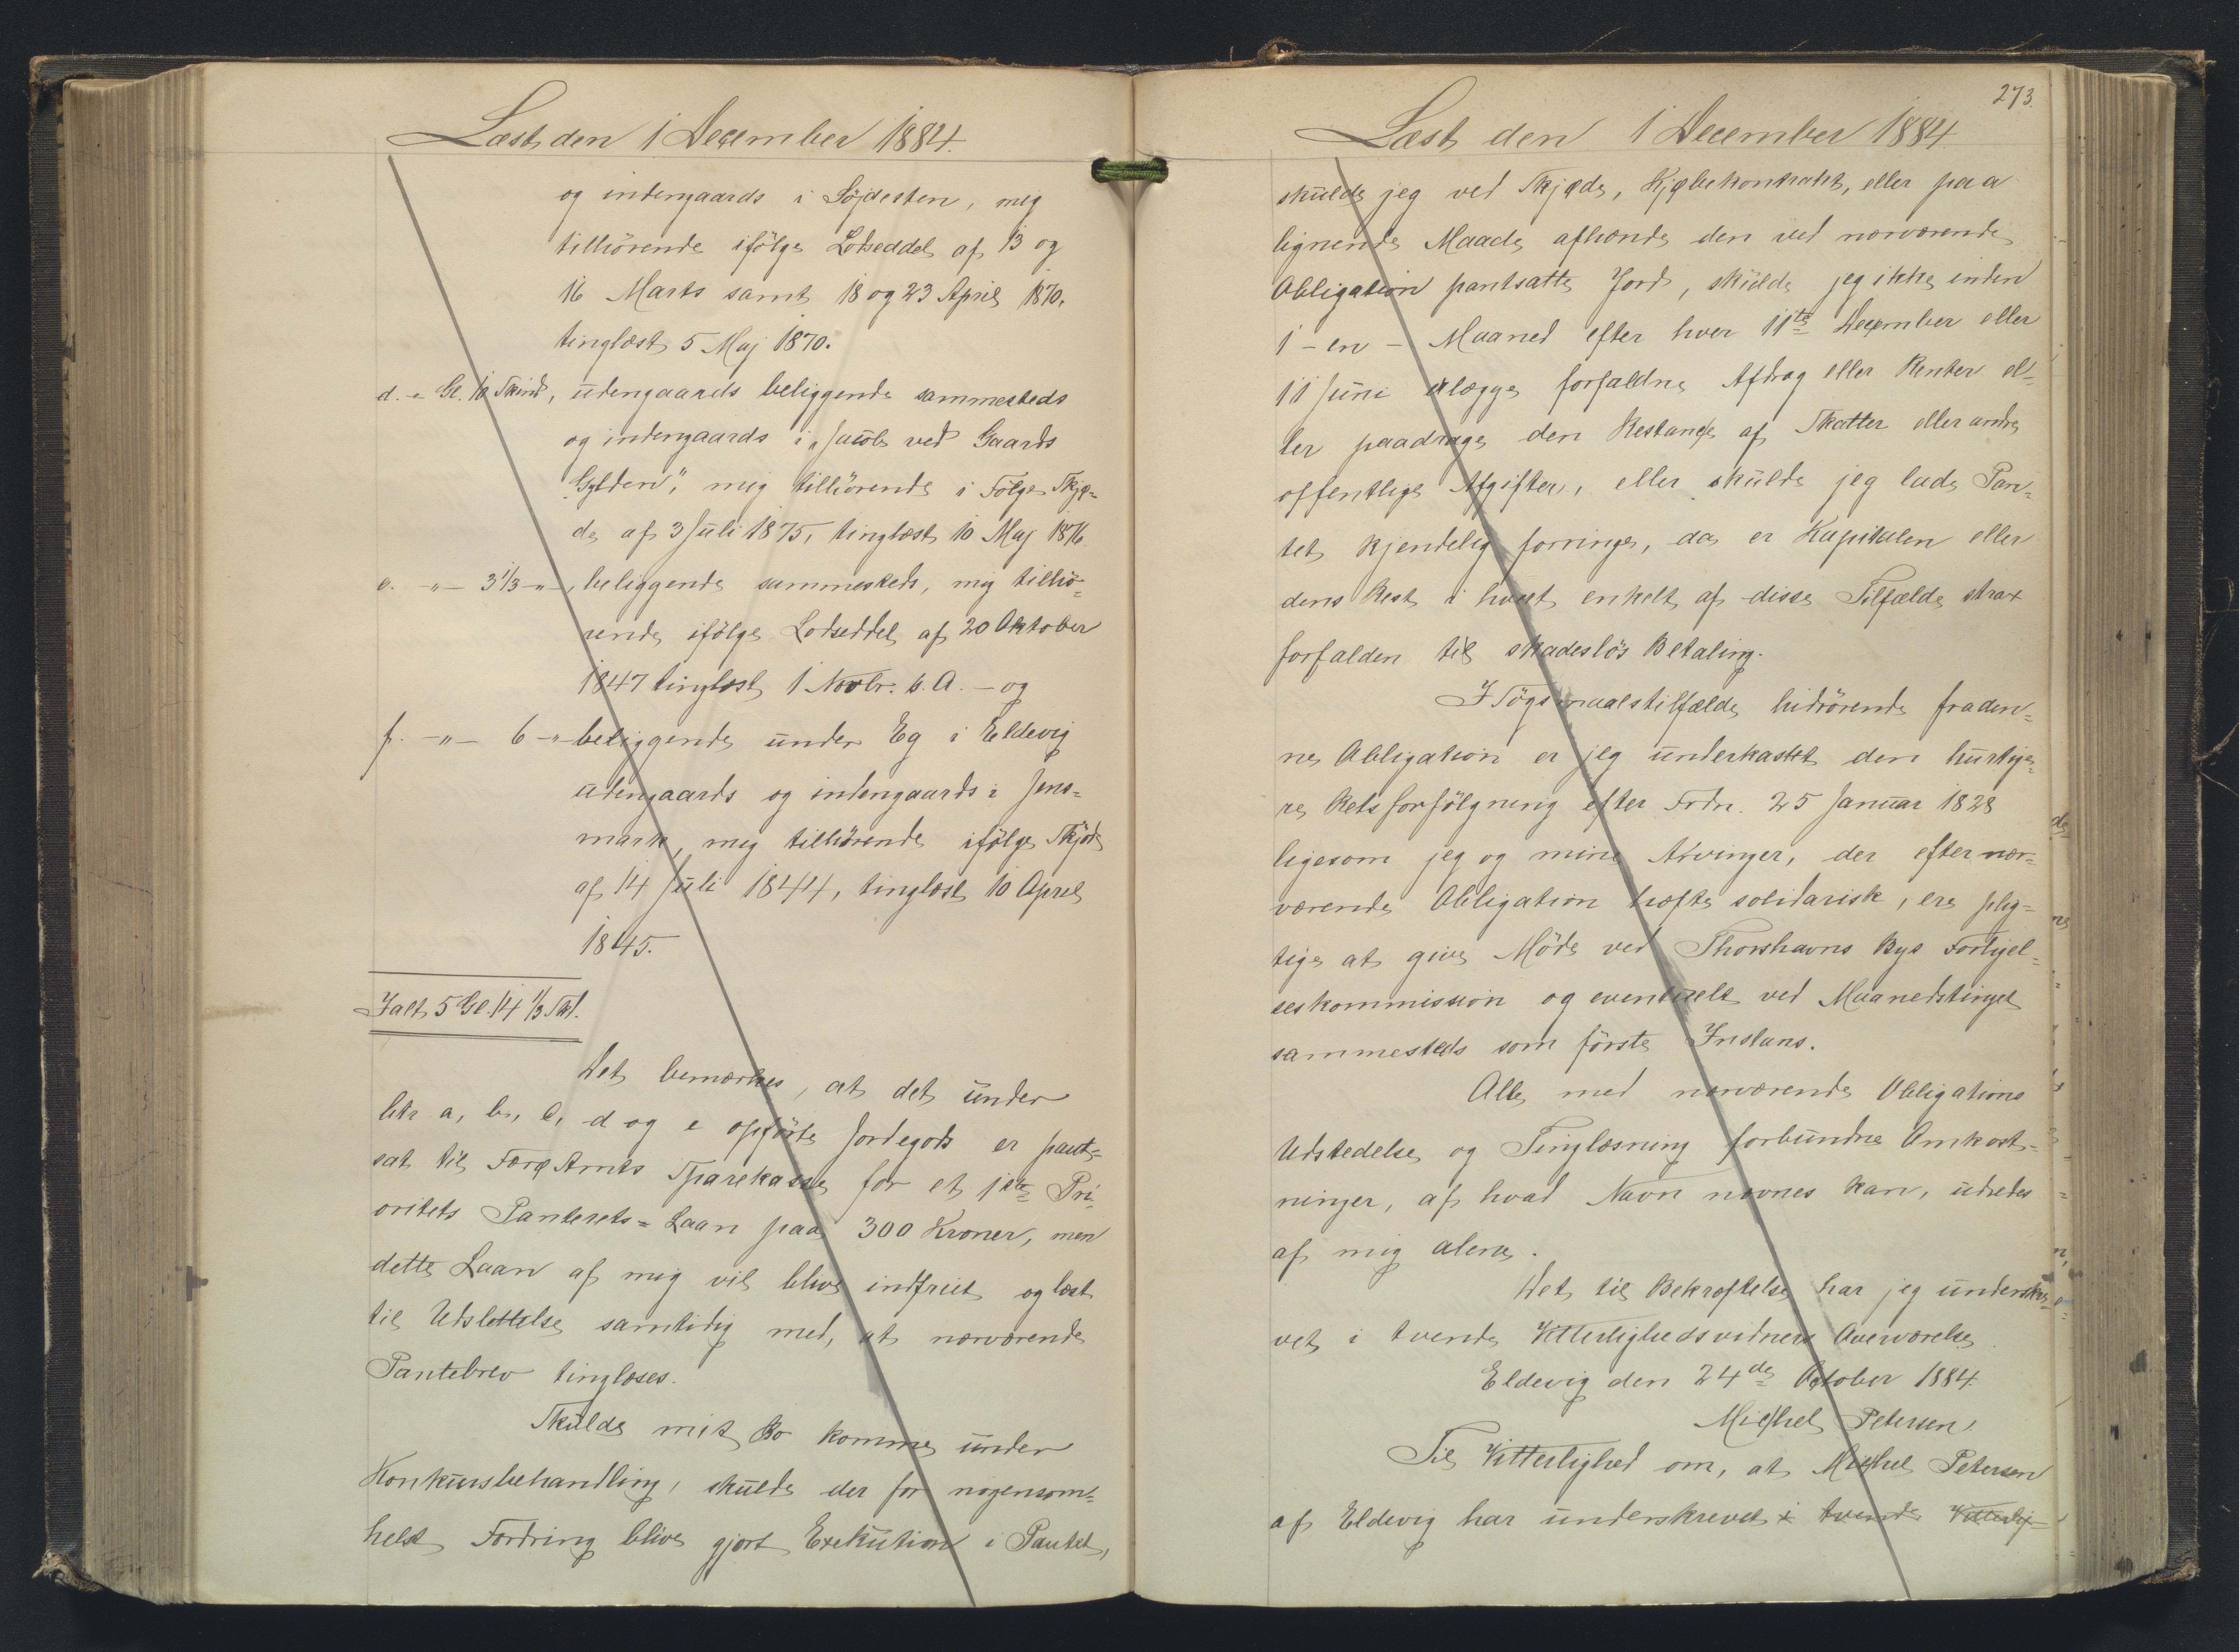 Læst den 1 December 1884.
og indengaards i Söjdesten, mig
tilhörende ifölge Lodseddel af 13 og
16 Marts samt 18 og 23 April 1870,
tinglæst 5 Maj 1870.
d. - Gl. 10 Skind, udengaards beliggende sammesteds
og indengaards i "Jacob ved Gaards
Gylden", mig tilhörende i Følge Skjø=
de af 3 Juli 1875, tinglæst 10 Maj 1876.
e. -"- 3 1/3 -"-, beliggende sammesteds, mig tilhö=
rende ifölge Lodseddel af 20 Oktober
1847 tinglæst 1 Novbr. s. A. - og
f. -"- 6 -"- beliggende under Eg i Eldevig
udengaards og indengaards i Jens=
mark, mig tilhörende ifölge Skjöde
af 14 Juli 1844, tinglæst 10 April
1845.
Ialt 5 Gl. 14 1/3 Skd.
Det bemærkes, at det under
litr a, b, c, d og e opförte Jordegods er pant=
sat til Færø Amts Sparekasse for et 1ste Pri
oritets Panterets=Laan paa 300 Kroner, men
dette Laan af mig vil blive indfriet og læst
til Udslettelse samtidig med, at nærværende
Pantebrev tinglæses.
Skulde mit Bo komme under
Konkursbehandling, skulde der for nogensom=
helst Fordring blive gjort Exekution i Pantet,
273.
Læst den 1 December 1884
skulde jeg ved Skjøde, Kjøbekontrakt, eller paa
lignende Maade afhænde den ved nærværende
Obligation pantsatte Jord, skulde jeg ikke inden
1 - en - Maaned efter hver 11te December eller
11 Juni erlægge forfaldne Afdrag eller Renter el=
ler paadrage den Restance af Skatter eller andre
offentlige Afgifter, eller skulde jeg lade Pan=
tet kjendelig forringe, da er Kapitalen eller
dens Rest i hvert enkelt af disse Tilfælde strax
forfalden til skadeslös Betaling.
I Sögsmaalstilfælde hidrörende fra den=
ne Obligation er jeg underkastet den hurtige=
re Retsforfölgning efter Frdn. 25 Januar 1828
ligesom jeg og mine Arvinger, der efter nær=
værende Obligation hæfte solidarisk, ere plig=
tige at give Möde ved Thorshavns Bys Forligel=
seskommission og eventuelt ved Maanedstinget
sammesteds som förste Instans.
Alle med nærværende Obligations
Udstedelse og Tinglæsning forbundne Omkost=
ninger, af hvad Navn nævnes kan, udredes
af mig alene.
Det til Bekræftelse har jeg underskre=
vet i tvende Vitterlighedsvidners Overværelse
Eldevig den 24de October 1884.
Michel Petersen.
Til Vitterlighed om, at Michel Petersen
af Eldevig har underskrevet i tvende Vitterlig=